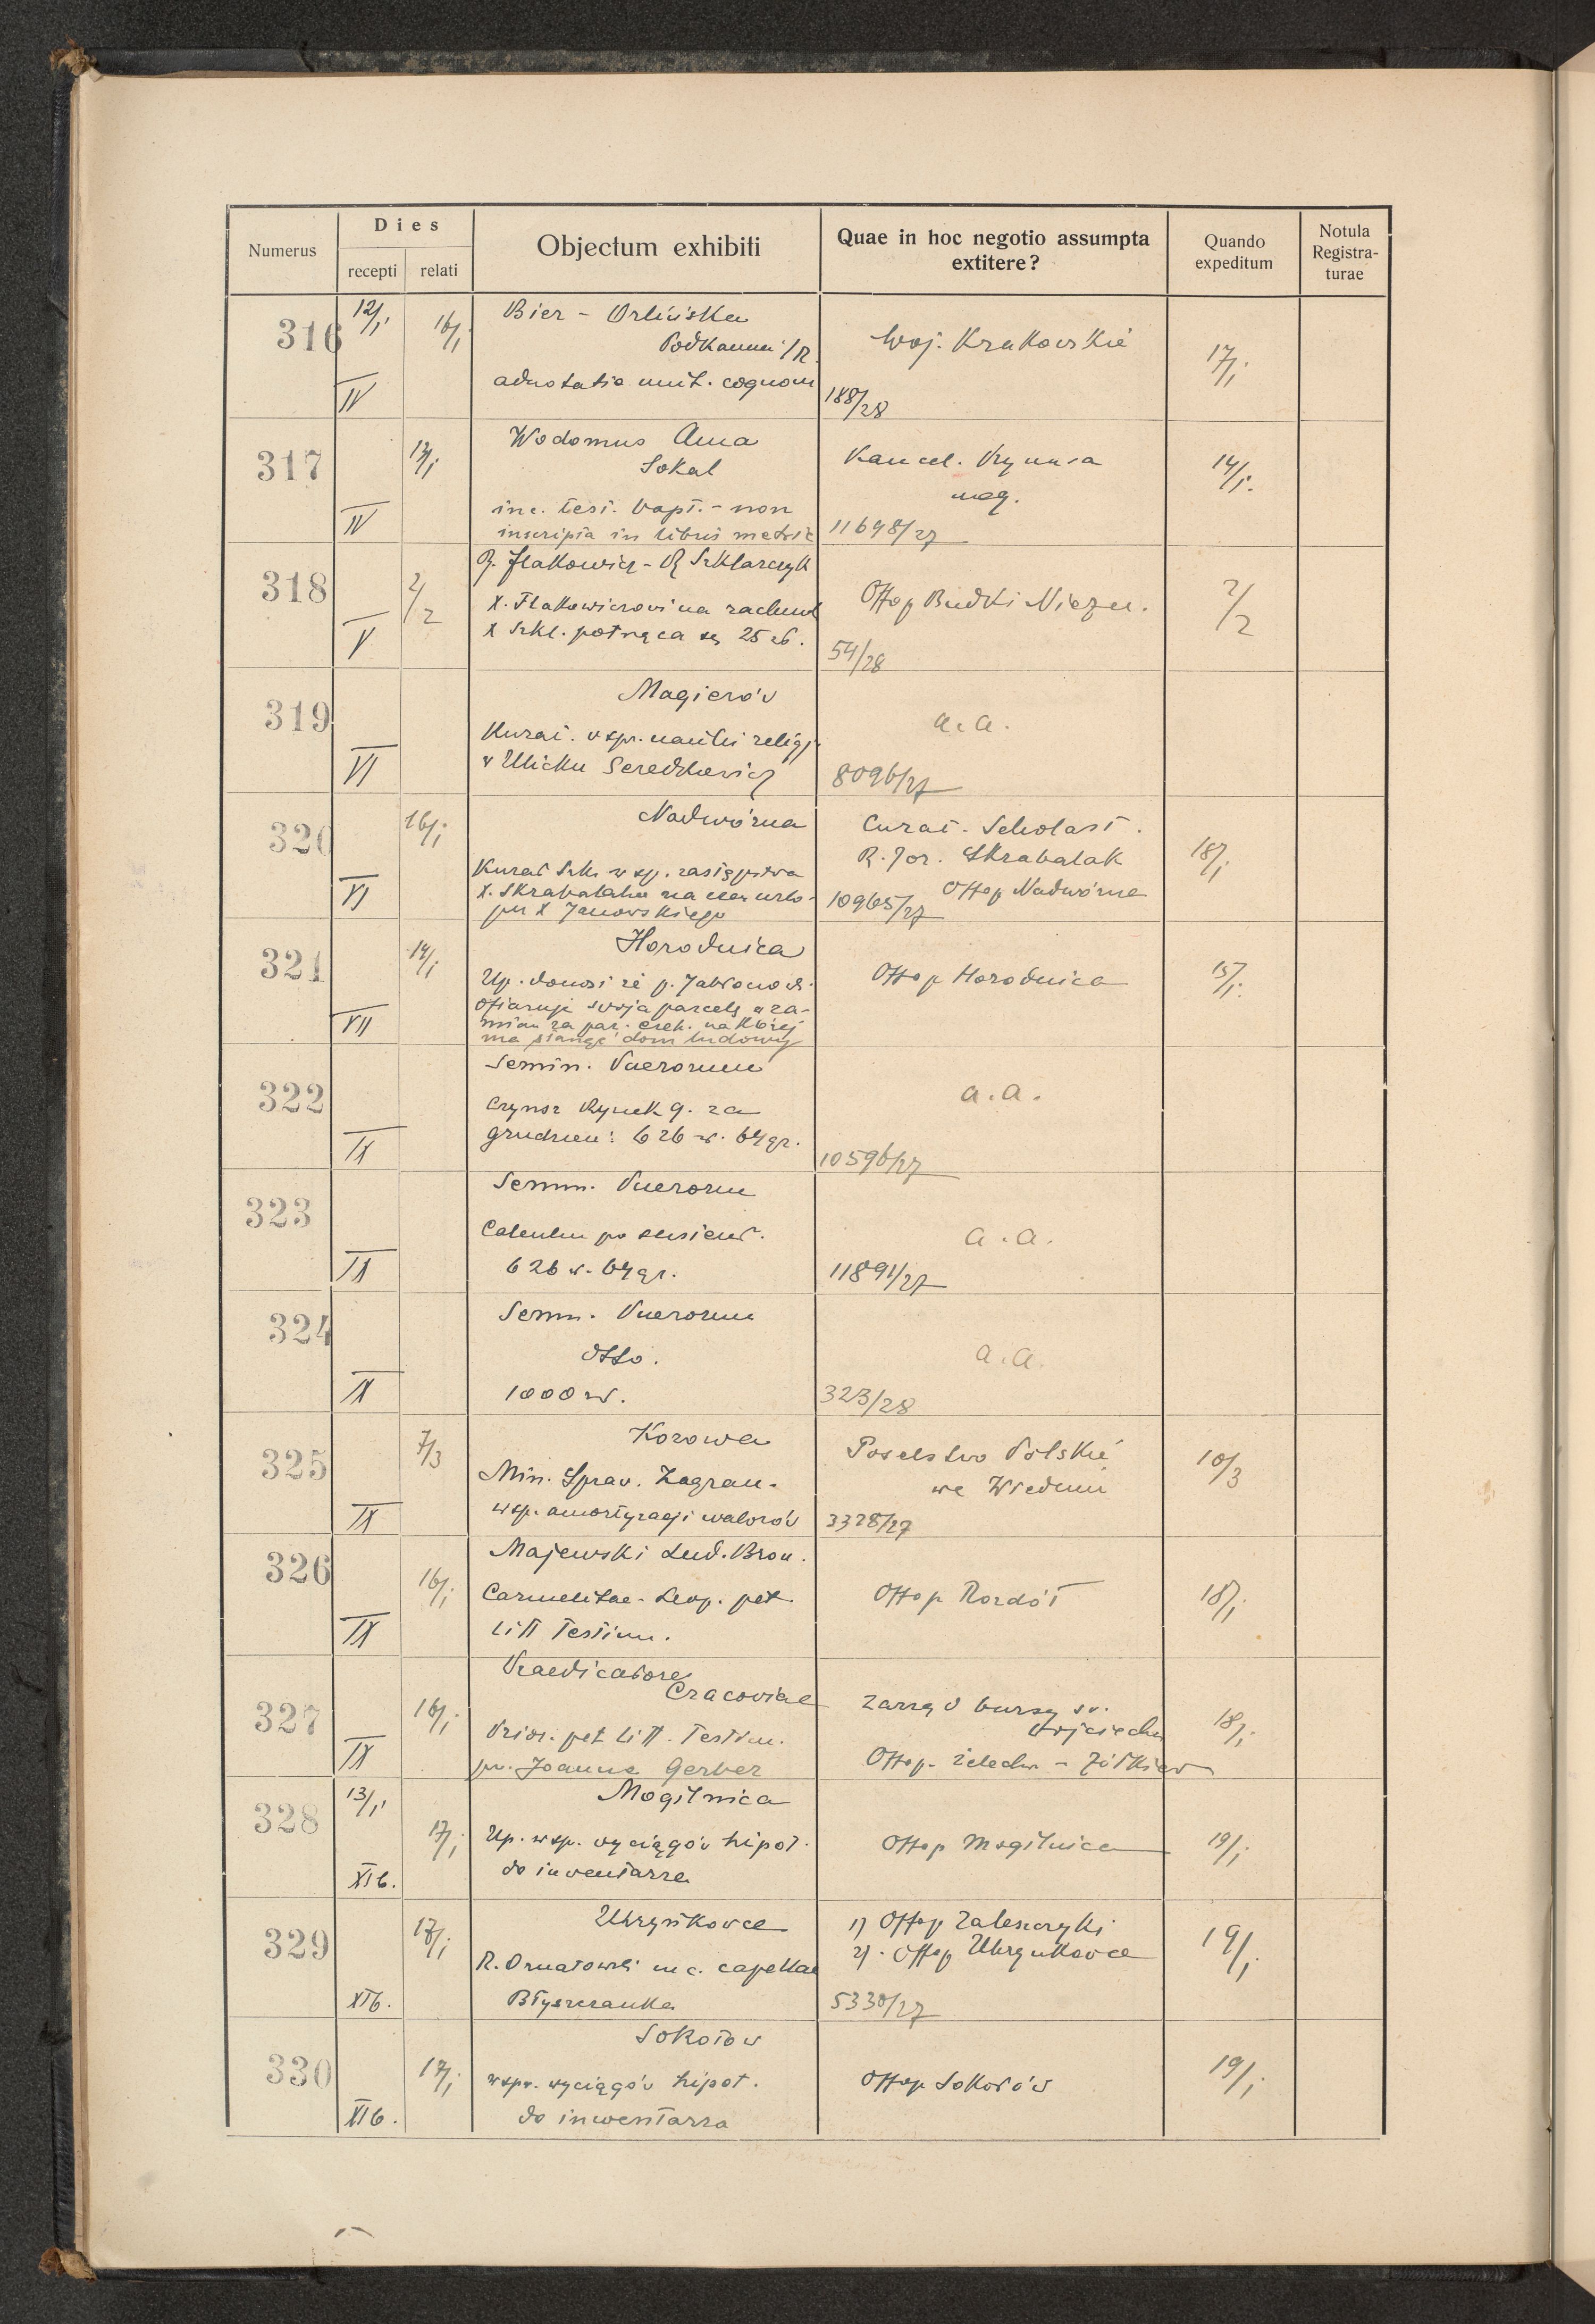 Numerus
Dies
recepti
relati
Objectum exhibiti
Quae in hoc negotio assumpta
extitere?
Quando
expeditum
Notula
Registra-
turae
316
12/1
16/1
IV
Bier - Orlińska
Podkamień /R.
adnotatio mut. cognom
Woj. Krakowskie
188/28
17/1
317
13/1
IV
Wodomus Anna
Sokal
inc. test. bapt. - non
inscripta in libris metric
Kancel.
neg.
11698/27
14/1.
318
2/2
V
R. Flakowicz - R Szklarczyk
X. Flakowiczowi na rachunk
X Szkl. potrąca się 25 zł.
Offo p Budki Niezn.
54/28
2/2
319
VI
Magierów
Kurat. w spr. nauki religji
w Ulicku Seredkiewicz
a.a.
8096/27
320
16/1
VI
Nadwórna
Kurat Szk. w sp. zastępstwa
X. Skrabalaka na czas urlo-
pu X Janowskiego
Curat. Scholast.
R. Jor. Skrabalak
Offo p Nadwórna
10965/27
18/1
321
14/1
VII
Horodnica
Up. donosi że p. Jabłonows.
ofiaruje swoją parcelę w za-
mian za par. erek. na której
ma stanąć dom ludowy
Offo p Horodnica
15/1.
322
IX
Semin. Puerorum
Czynsz Rynek 9. za
grudzień: 626 zł. 64 gr.
a.a.
10596/27
323
IX
Semin. Puerorum
Calculum pro
626 zł. 64 gr.
a.a.
11891/27
324
IX
Semin. Puerorum
otto.
1000 zł.
a.a.
323/28
325
7/3
IX
Kozowa
Min. Spraw. Zagran.
w sp. amortyzacji walorów
Poselstwo Polskie
we Wiedniu
3328/27
10/3
326
16/1
IX
Majewski Lud. Bron.
Carmelitae - Leop. pet.
litt Testim.
Offo p Rozdół
18/1
327
16/1
IX
Praedicatores
Cracoviae
Prior. pet litt. Testim.
pr. Joanne Gerber
Zarząd bursy św.
Wojciecha
Offo p. Żelechów - Żółkiew
18/1
328
13/1
17/1
XIb.
Mogilnica
Up. w sp. wyciągów hipot.
do inwentarza
Offo p Mogilnica
19/1
329
17/1
XIb.
Uhryńkowce
R. Ornatowski in c. capellae
Błyszczanka
1) Offo p Zaleszczyki
2). Offo p Uhryńkowce
5330/27
19/1
330
17/1
XIb.
Sokołów
w spr. wyciągów hipot.
do inwentarza
Offo p Sokołów
19/1